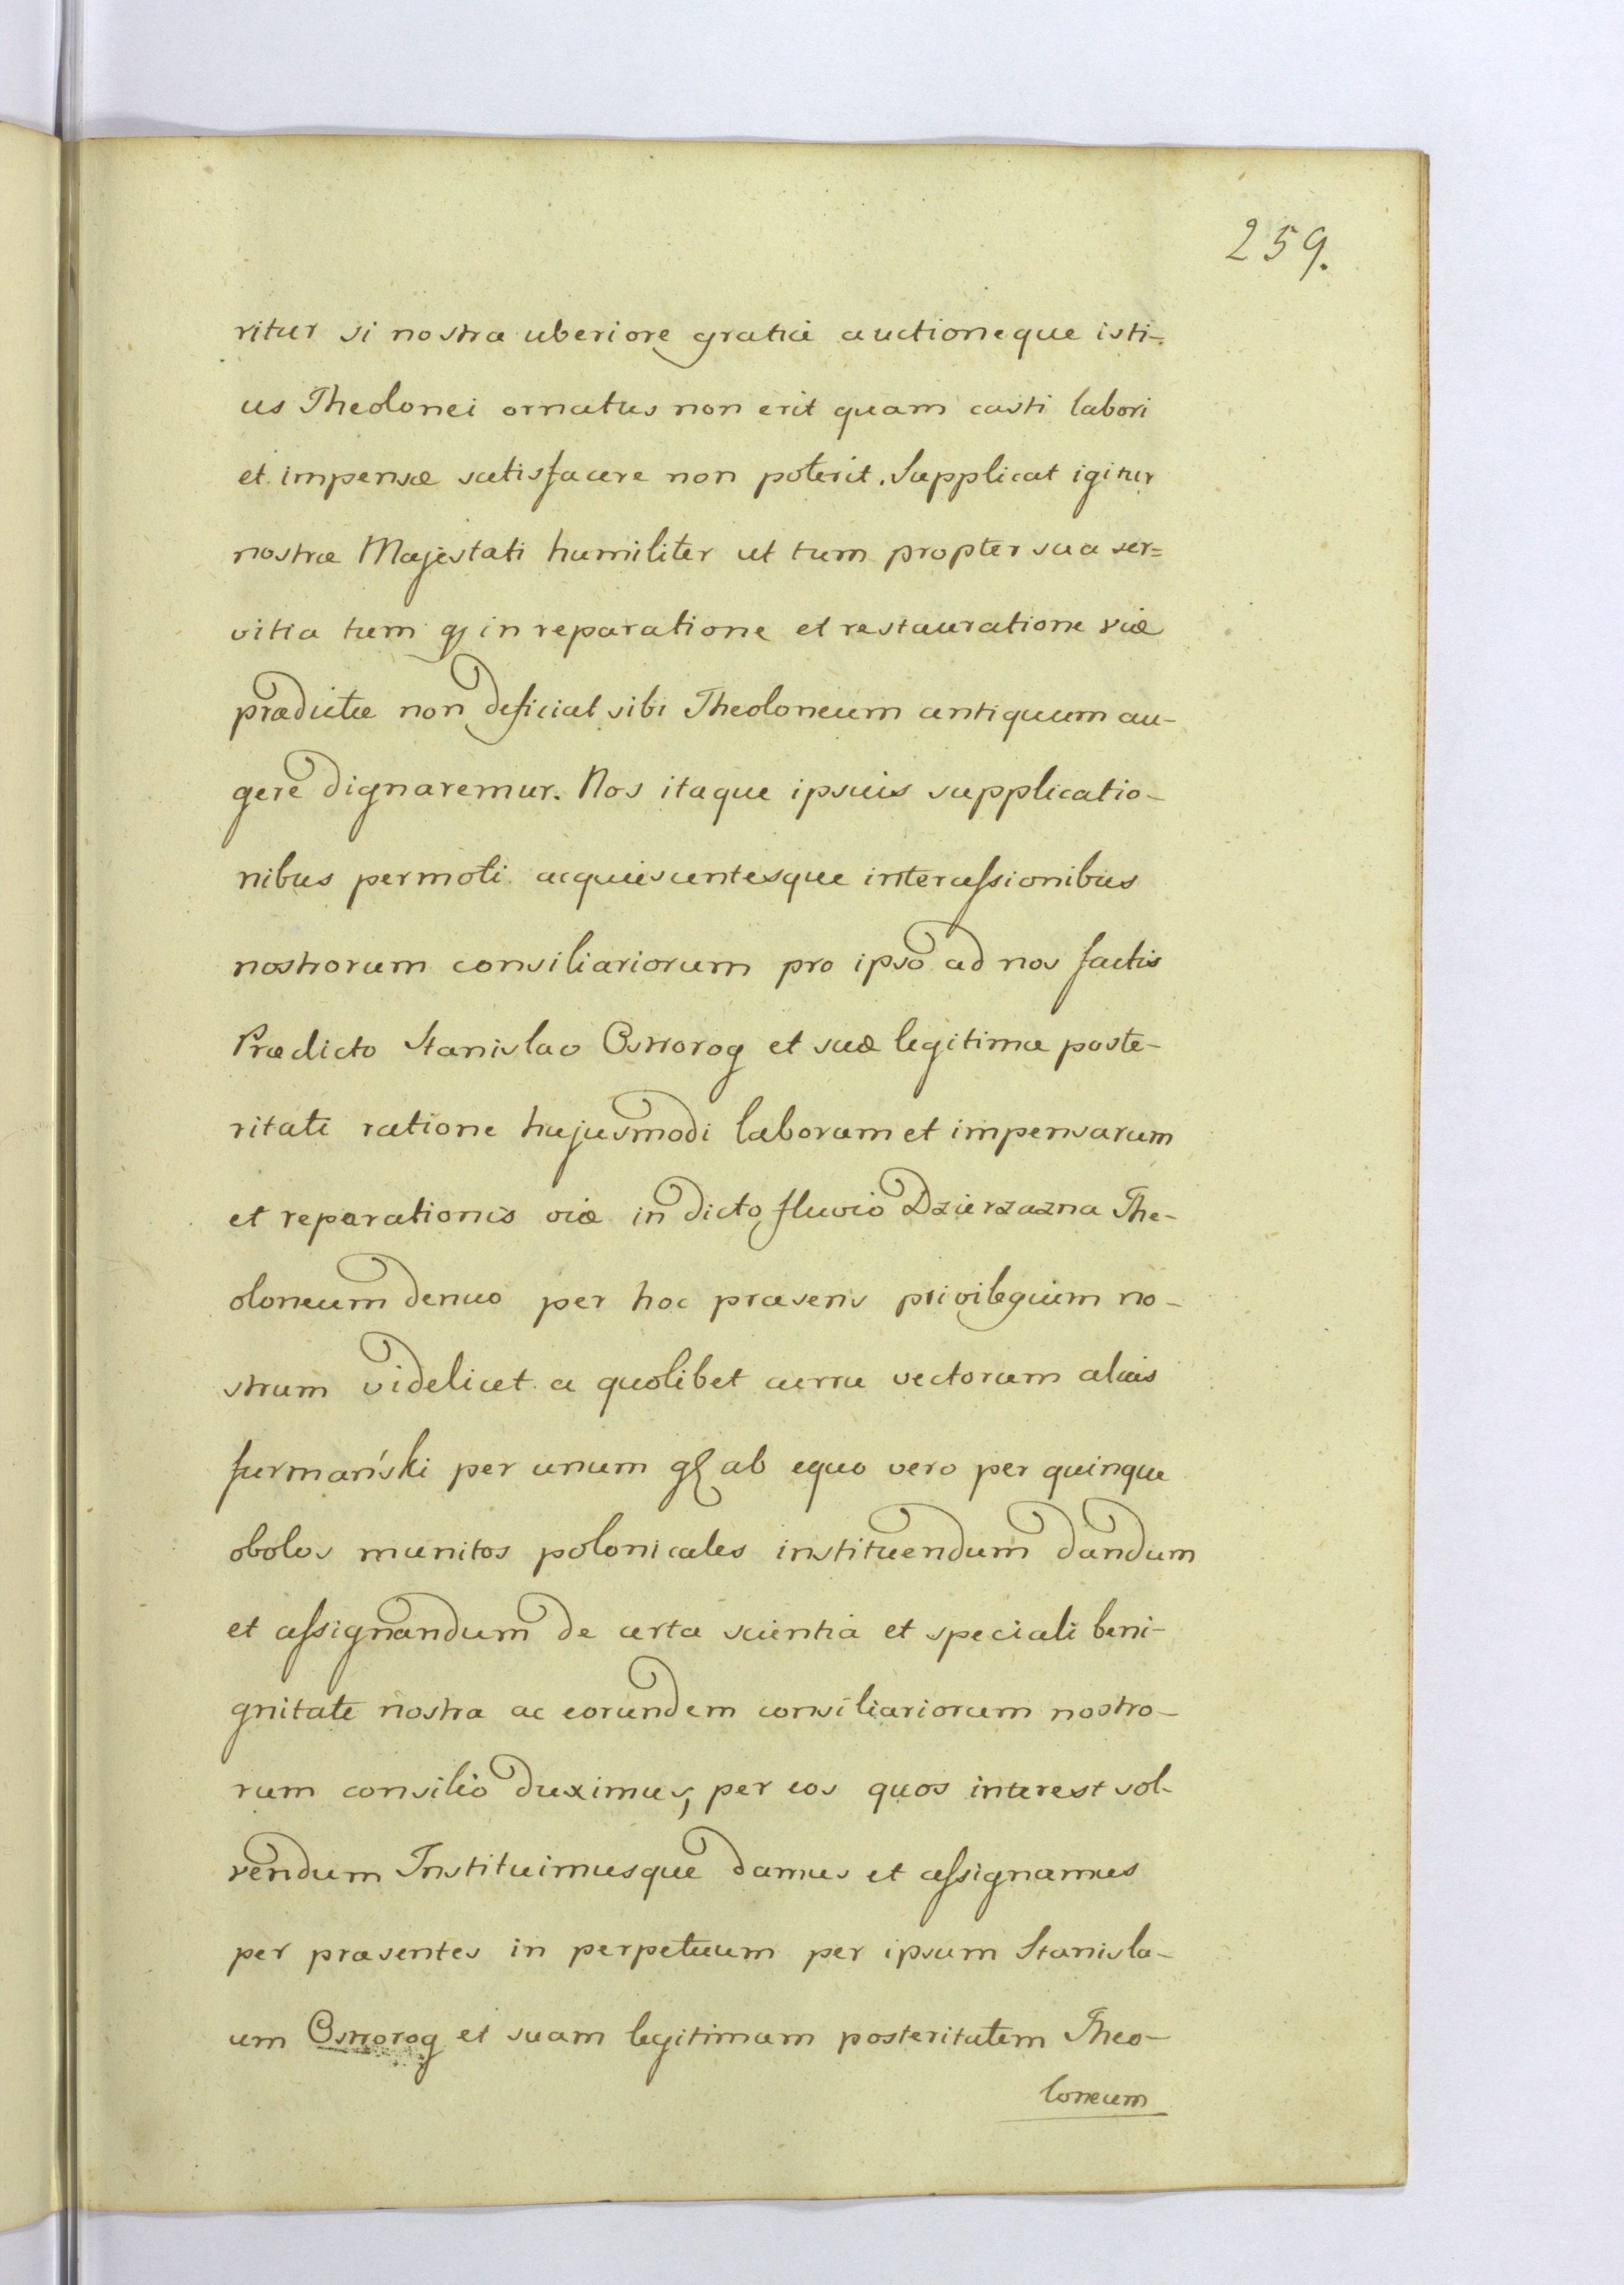 259.
ritur si nostra uberiore gratia auctioneque isti-
us Theolonei ornatus non erit quam casti labori
et impensæ satisfacere non poterit. Supplicat igitur
nostræ Majestati humiliter ut tum propter sua ser=
vitia tum in reparatione et restauratione viæ
prædictæ non deficiat sibi Theoloneum antiquum au-
gere dignaremur. Nos itaque ipsius supplicatio-
nibus permoti acquiescentesque intercessionibus
nostrorum consiliariorum pro ipso ad nos factis
Prædicto Stanislao Ostrorog et suæ legitimæ poste-
ritati ratione hujusmodi laborum et impensarum
et reparationis viæ in dicto fluvio Dzierzazna The-
oloneum denuo per hoc præsens privilegium no-
strum videlicet a quolibet curru vectorum alias
furmański per unum gl ab equo vero per quinque
obolos munitos polonicales instituendum dandum
et assignandum de certa scientia et speciali beni-
gnitate nostra ac eorundem consiliariorum nostro-
rum consilio duximus, per eos quos interest sol-
vendum Instituimusque damus et assignamus
per præsentes in perpetuum per ipsum Stanisla-
um Ostrorog et suam legitimam posteritatem Theo-
loneum